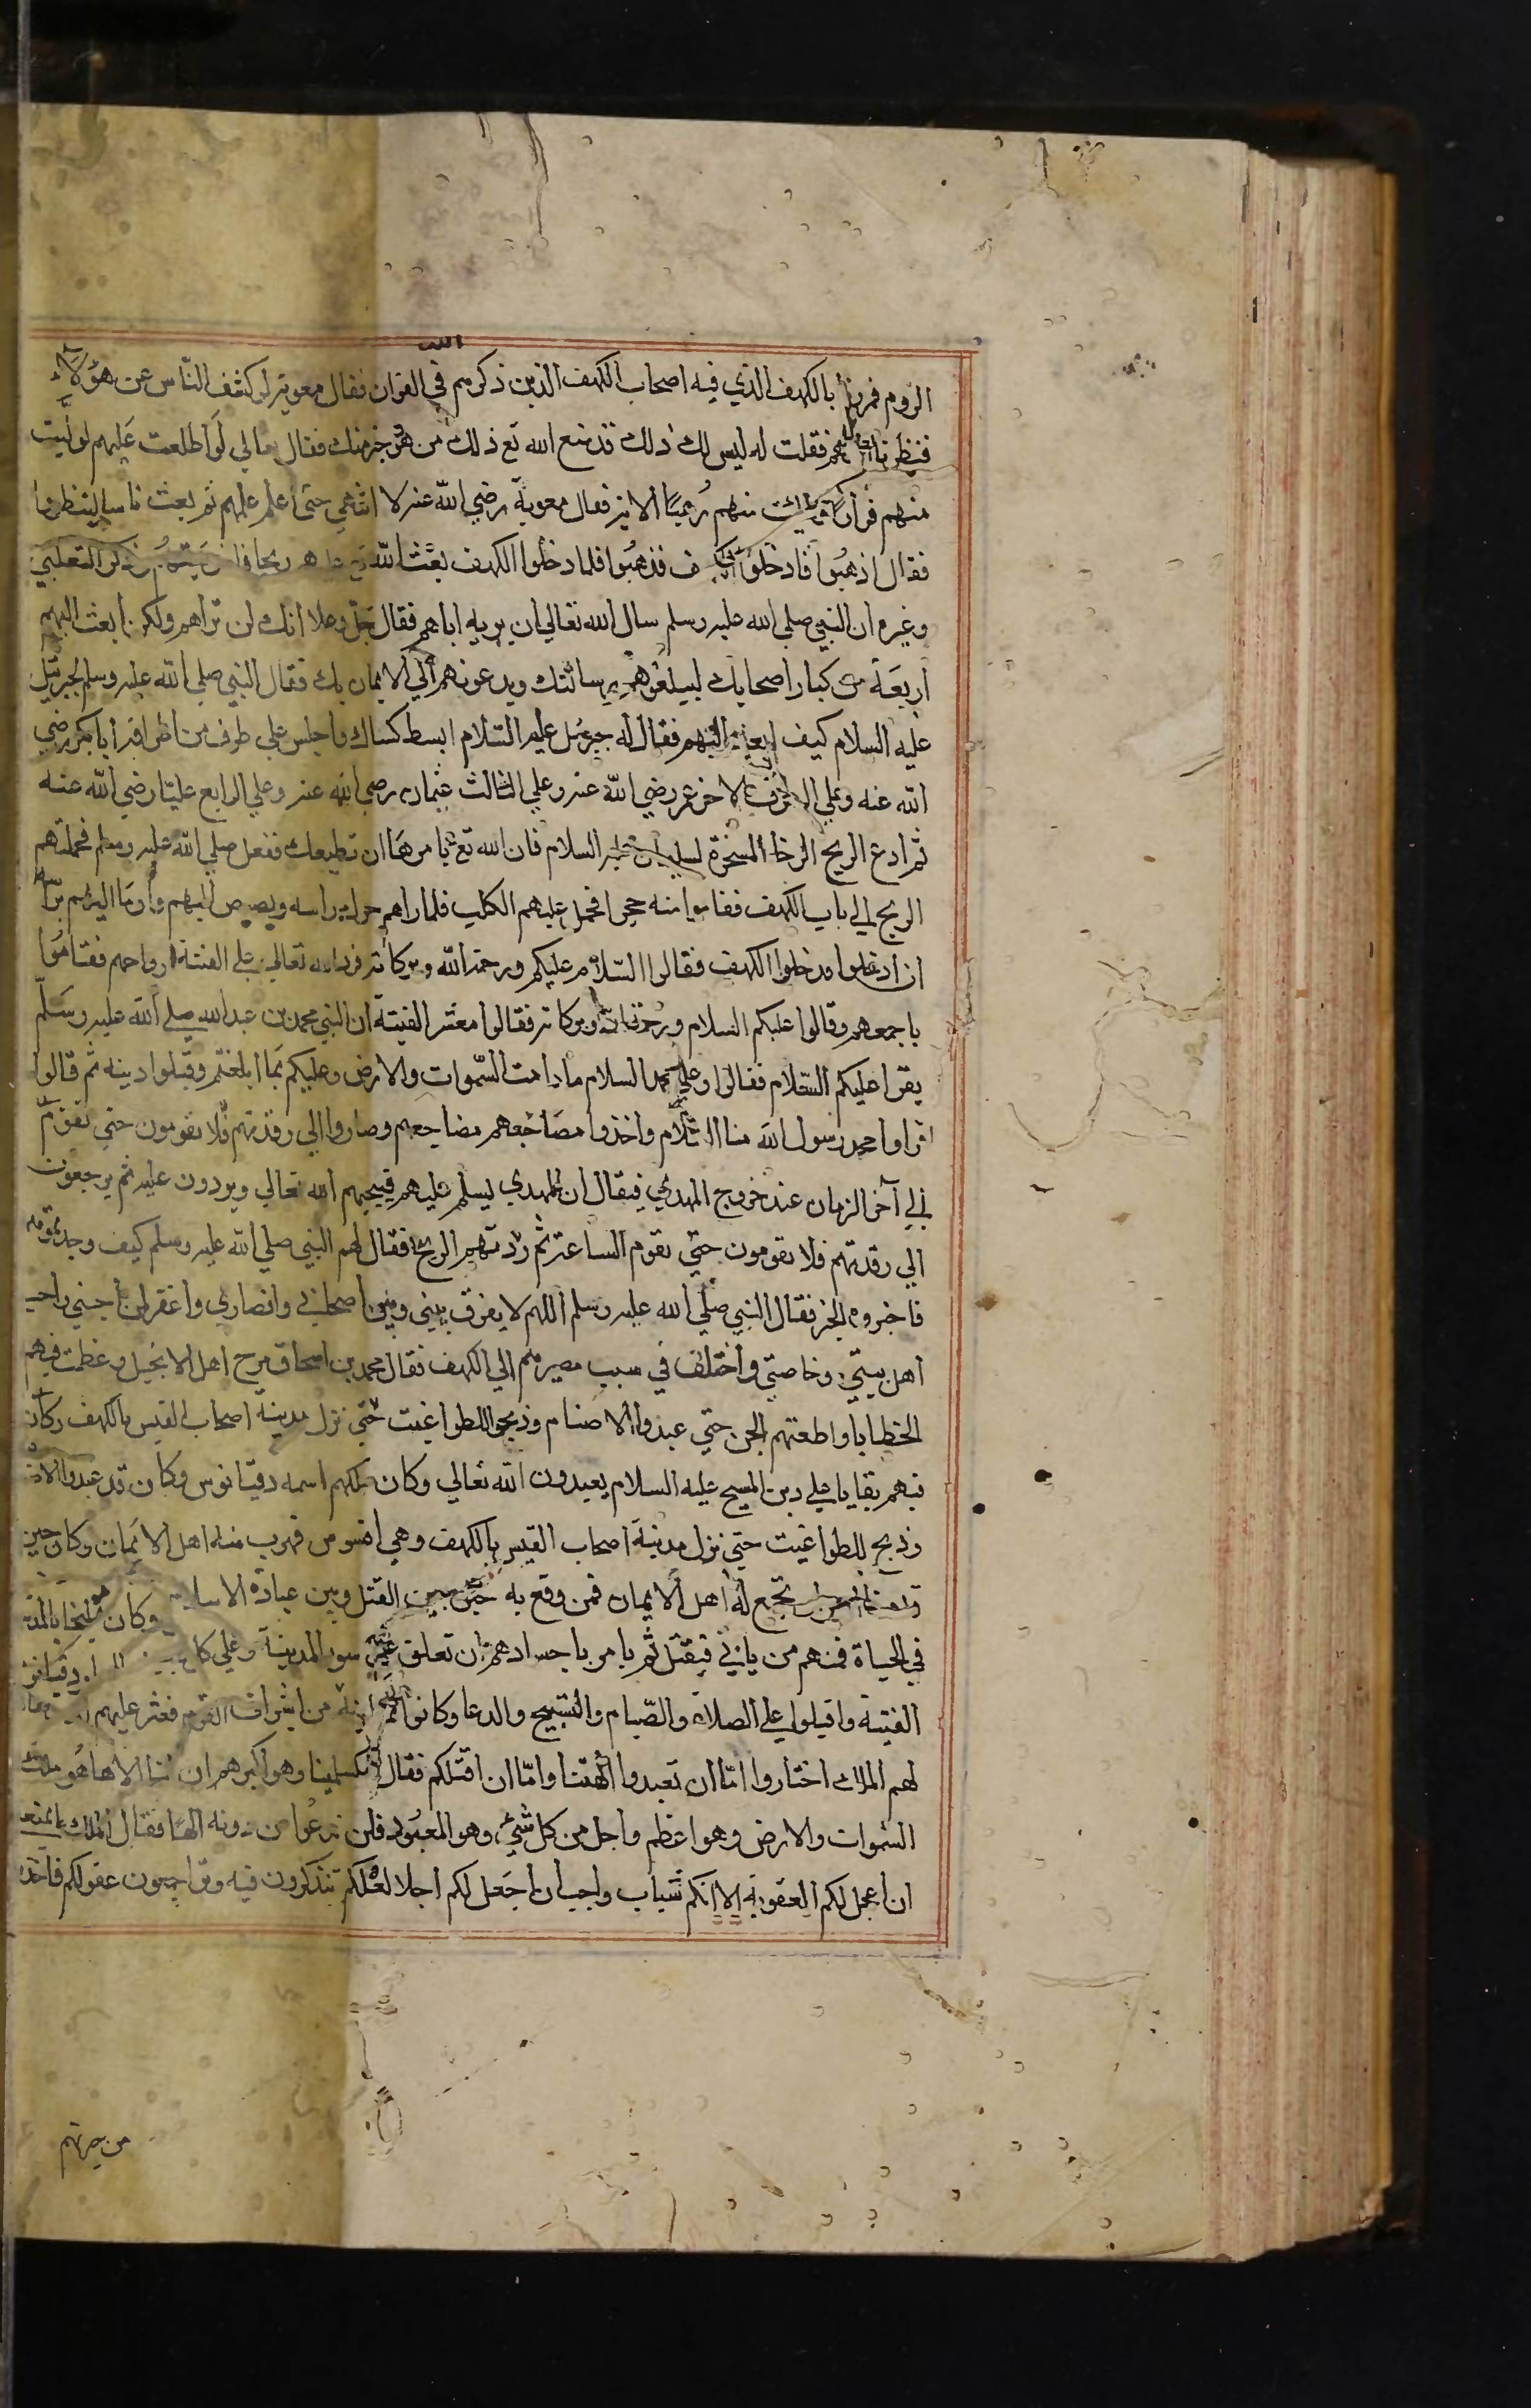 الروم فمررنا بالكهف الذي فيه اصحاب الكهف الذين ذكرهم الله في القران فقال معوية لو كشف الناس عن هؤلاء
فنظرنا اليهم فقلت له ليس لك ذلك قد منع الله تع ذلك من هو خير منك فقال تعالي لو اطلعت عليهم لوليت
منهم فرارا ولملئت منهم رعبا الاية فقال معوية رضي الله عنه لا انتهي حتي اعلم علمهم ثم بعث ناسا لينظروا
فقال اذهبوا فادخلوا الكهف فذهبوا فلما دخلوا الكهف بعث الله تع عليهم ريحا وذكر الثعلبي
وغيره ان النبي صلي الله عليه وسلم سال الله تعالي ان يريه اياهم فقال جل وعلا انك لن تراهم ولكن ابعث اليهم
اربعة من كبار اصحابك ليبلغوهم رسالتك ويدعونهم الي الايمان بك فقال النبي صلي الله عليه وسلم لجبرئيل
عليه السلام كيف ابعث اليهم فقال له جبرئيل عليه السلام ابسط كساك واجلس علي طرف من اطرافه ابا بكر رضي
الله عنه وعلي الطرف الاخر عمر رضي الله عنه وعلي الثالث عثمان رضي الله عنه وعلي الرابع عليا رضي الله عنه
ثم ادع الريح الرخا المسخرة لسليمان عليه السلام فان الله تع يامرها ان تطيعك ففعل صلي الله عليه وسلم فحملتهم
الريح الي باب الكهف فقاموا منه حجرا فحمل عليهم الكلب فلما راهم حرك راسه وبصبص اليهم واوما اليهم براسه
ان ادخلوا فدخلوا الكهف فقالوا السلام عليكم ورحمة الله وبركاته فرد الله تعالي علي الفتية ارواحهم فقاموا
باجمعهم وقالوا عليكم السلام ورحمة الله وبركاته فقالوا معشر الفتية ان النبي محمد بن عبد الله صلي الله عليه وسلم
يقرا عليكم السلام فقالوا وعلي محمد السلام ما دامت السموات والارض وعليكم بما ابلغتم وقبلوا دينه ثم قالوا
اقراوا محمد رسول الله منا السلام واخذوا مضاجعهم وصاروا الي رقدتهم فلا يقومون حتي تقوم
الي آخر الزمان عند خروج المهدي فيقال ان المهدي ليسلم عليهم فيحييهم الله تعالي ويردون عليه ثم يرجعون
الي رقدتهم فلا يقومون حتي تقوم الساعة ثم ردتهم الريح فقال لهم النبي صلي الله عليه وسلم كيف وجدتموهم
فاخبروه الخبر فقال النبي صلي الله عليه وسلم اللهم لا تفرق بيني وبين اصحابي وانصاري واغفر لمن احبني واحب
اهل بيتي وخاصتي واختلف في سبب مصيرهم الي الكهف فقال محمد بن اسحاق مرج اهل الانجيل وعظمت فيهم
الخطايا واطغتهم الجن حتي عبدوا الاصنام وذبحوا للطواغيت حتي نزل مدينة اصحاب القيس بالكهف وكان
فيهم بقايا علي دين المسيح عليه السلام يعبدون الله تعالي وكان ملكهم اسمه دقيانوس وكان قد عبدوا
وذبح للطواغيت حتي نزل مدينة اصحاب القيس بالكهف وهي افسوس فهرب منه اهل الايمان وكان حين
تجمع له اهل الايمان فمن وقع به خير بين القتل وبين عبادة
في الحياة فمنهم من يابي فيقتل ثم يامر باجسادهم ان تعلق علي سور المدينة وعلي كل
الفتية واقبلوا علي الصلاة والصيام والتسبيح والدعا وكانوا من اشراف القوم فعثر عليهم
لهم الملك اختاروا اما ان تعبدوا الهتنا واما ان اقتلكم فقال مكسلمينا وهو اكبرهم ان لنا الاها هو ملك
السموات والارض وهو اعظم واجل من كل شيء وهو المعبود فلن ندعوا من دونه الها فقال الملك
ان اعجل لكم العقوبة الا انكم شباب واحب ان اجعل لكم اجلا لعلكم تتذكرون فيه وتراجعون عقولكم